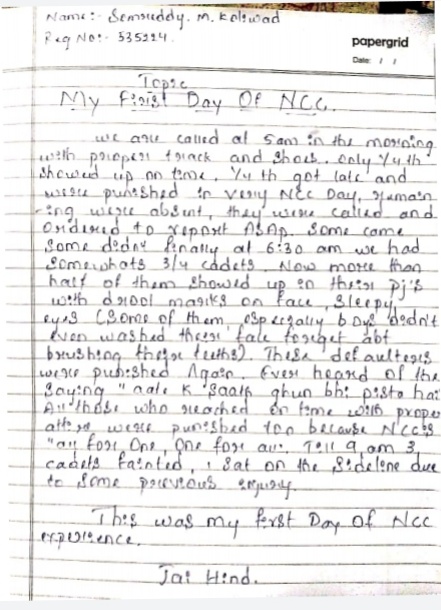 Name:- Somreddy. M. Kolswad
Reg No:- 535224.
papergrid
Date: / /
Topic
My First Day Of NCC.
we are called at 5am in the morning
with proper track and shoes. only 1/4 th
showed up on time, 1/4 th got late and
were punished in very NCC Day, remain
-ing were absent, they were called and
ordered to report ASAp. Some came
Some didnt finally at 6:30 am we had
Somewhats 3/4 cadets. Now more than
half of them showed up in their pj's
with drool marks on face, sleepy
eyes (Some of them, especially boys didn't
even washed their face forget abt
brushing their teeths). These defaulters
were punished Again. Ever heard of the
Saying "aate K Saath ghun bhi pista hai
All those who reached on time with prope
attire were punished too because NCC is
"all for One, One for all. Till 9 am 3
cadets fainted, i Sat on the Sideline due
to Some previous injury.
This was my first Day Of NCC
experience.
Jai Hind.